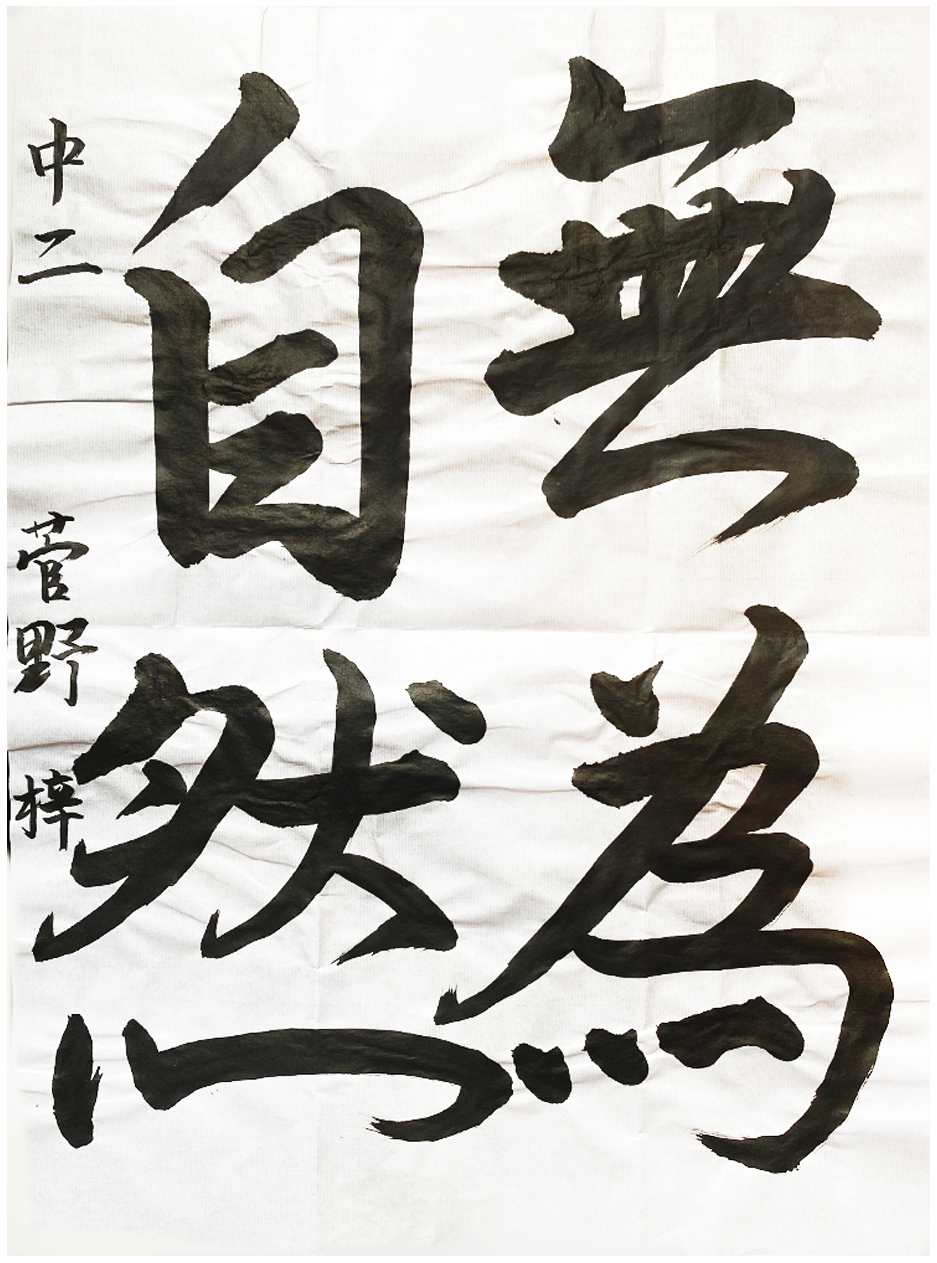 無為
自然
中二 菅野 梓